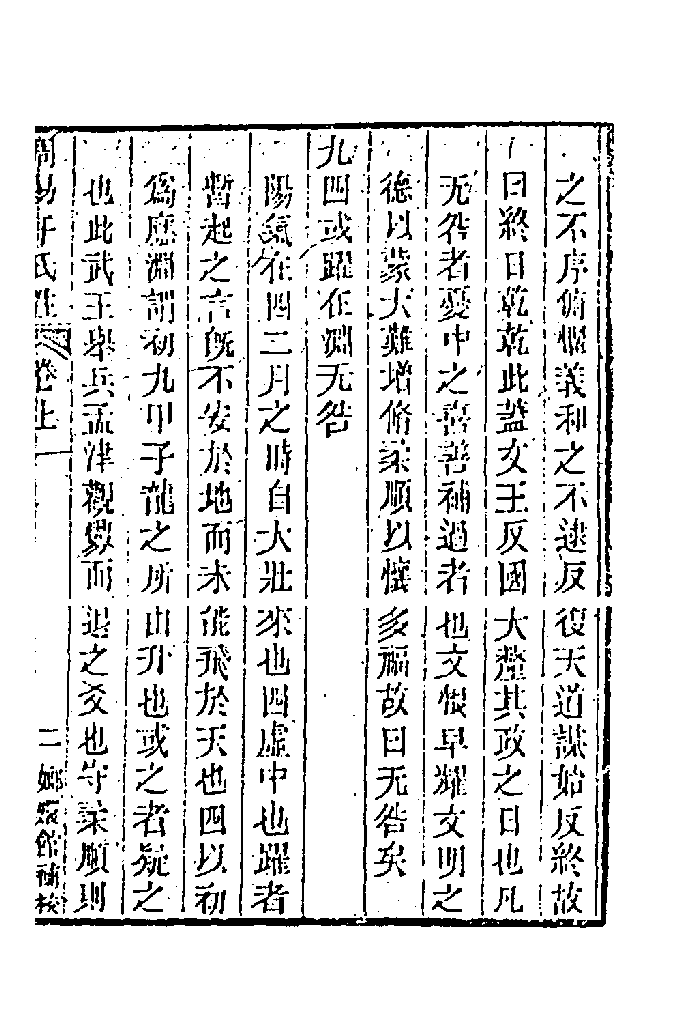 之不序俯懼義和之不逮反復天道謀始反終故
曰終日乾乾此蓋文王反國大釐其政之日也凡
无咎者憂中之喜善補過者也文恨早耀文明之
德以蒙大難增修柔順以懷多福故曰无咎矣
九四或躍在淵无咎
陽氣在四二月之時自大壯來也四虛中也躍者
暫起之言旣不安於地而未能飛於天也四以初
爲應淵謂初九甲子龍之所由升也或之者疑之
也此武王舉兵孟津觀釁而退之爻也守柔順則
周易干氏注 卷上 二 嫏嬛館補校